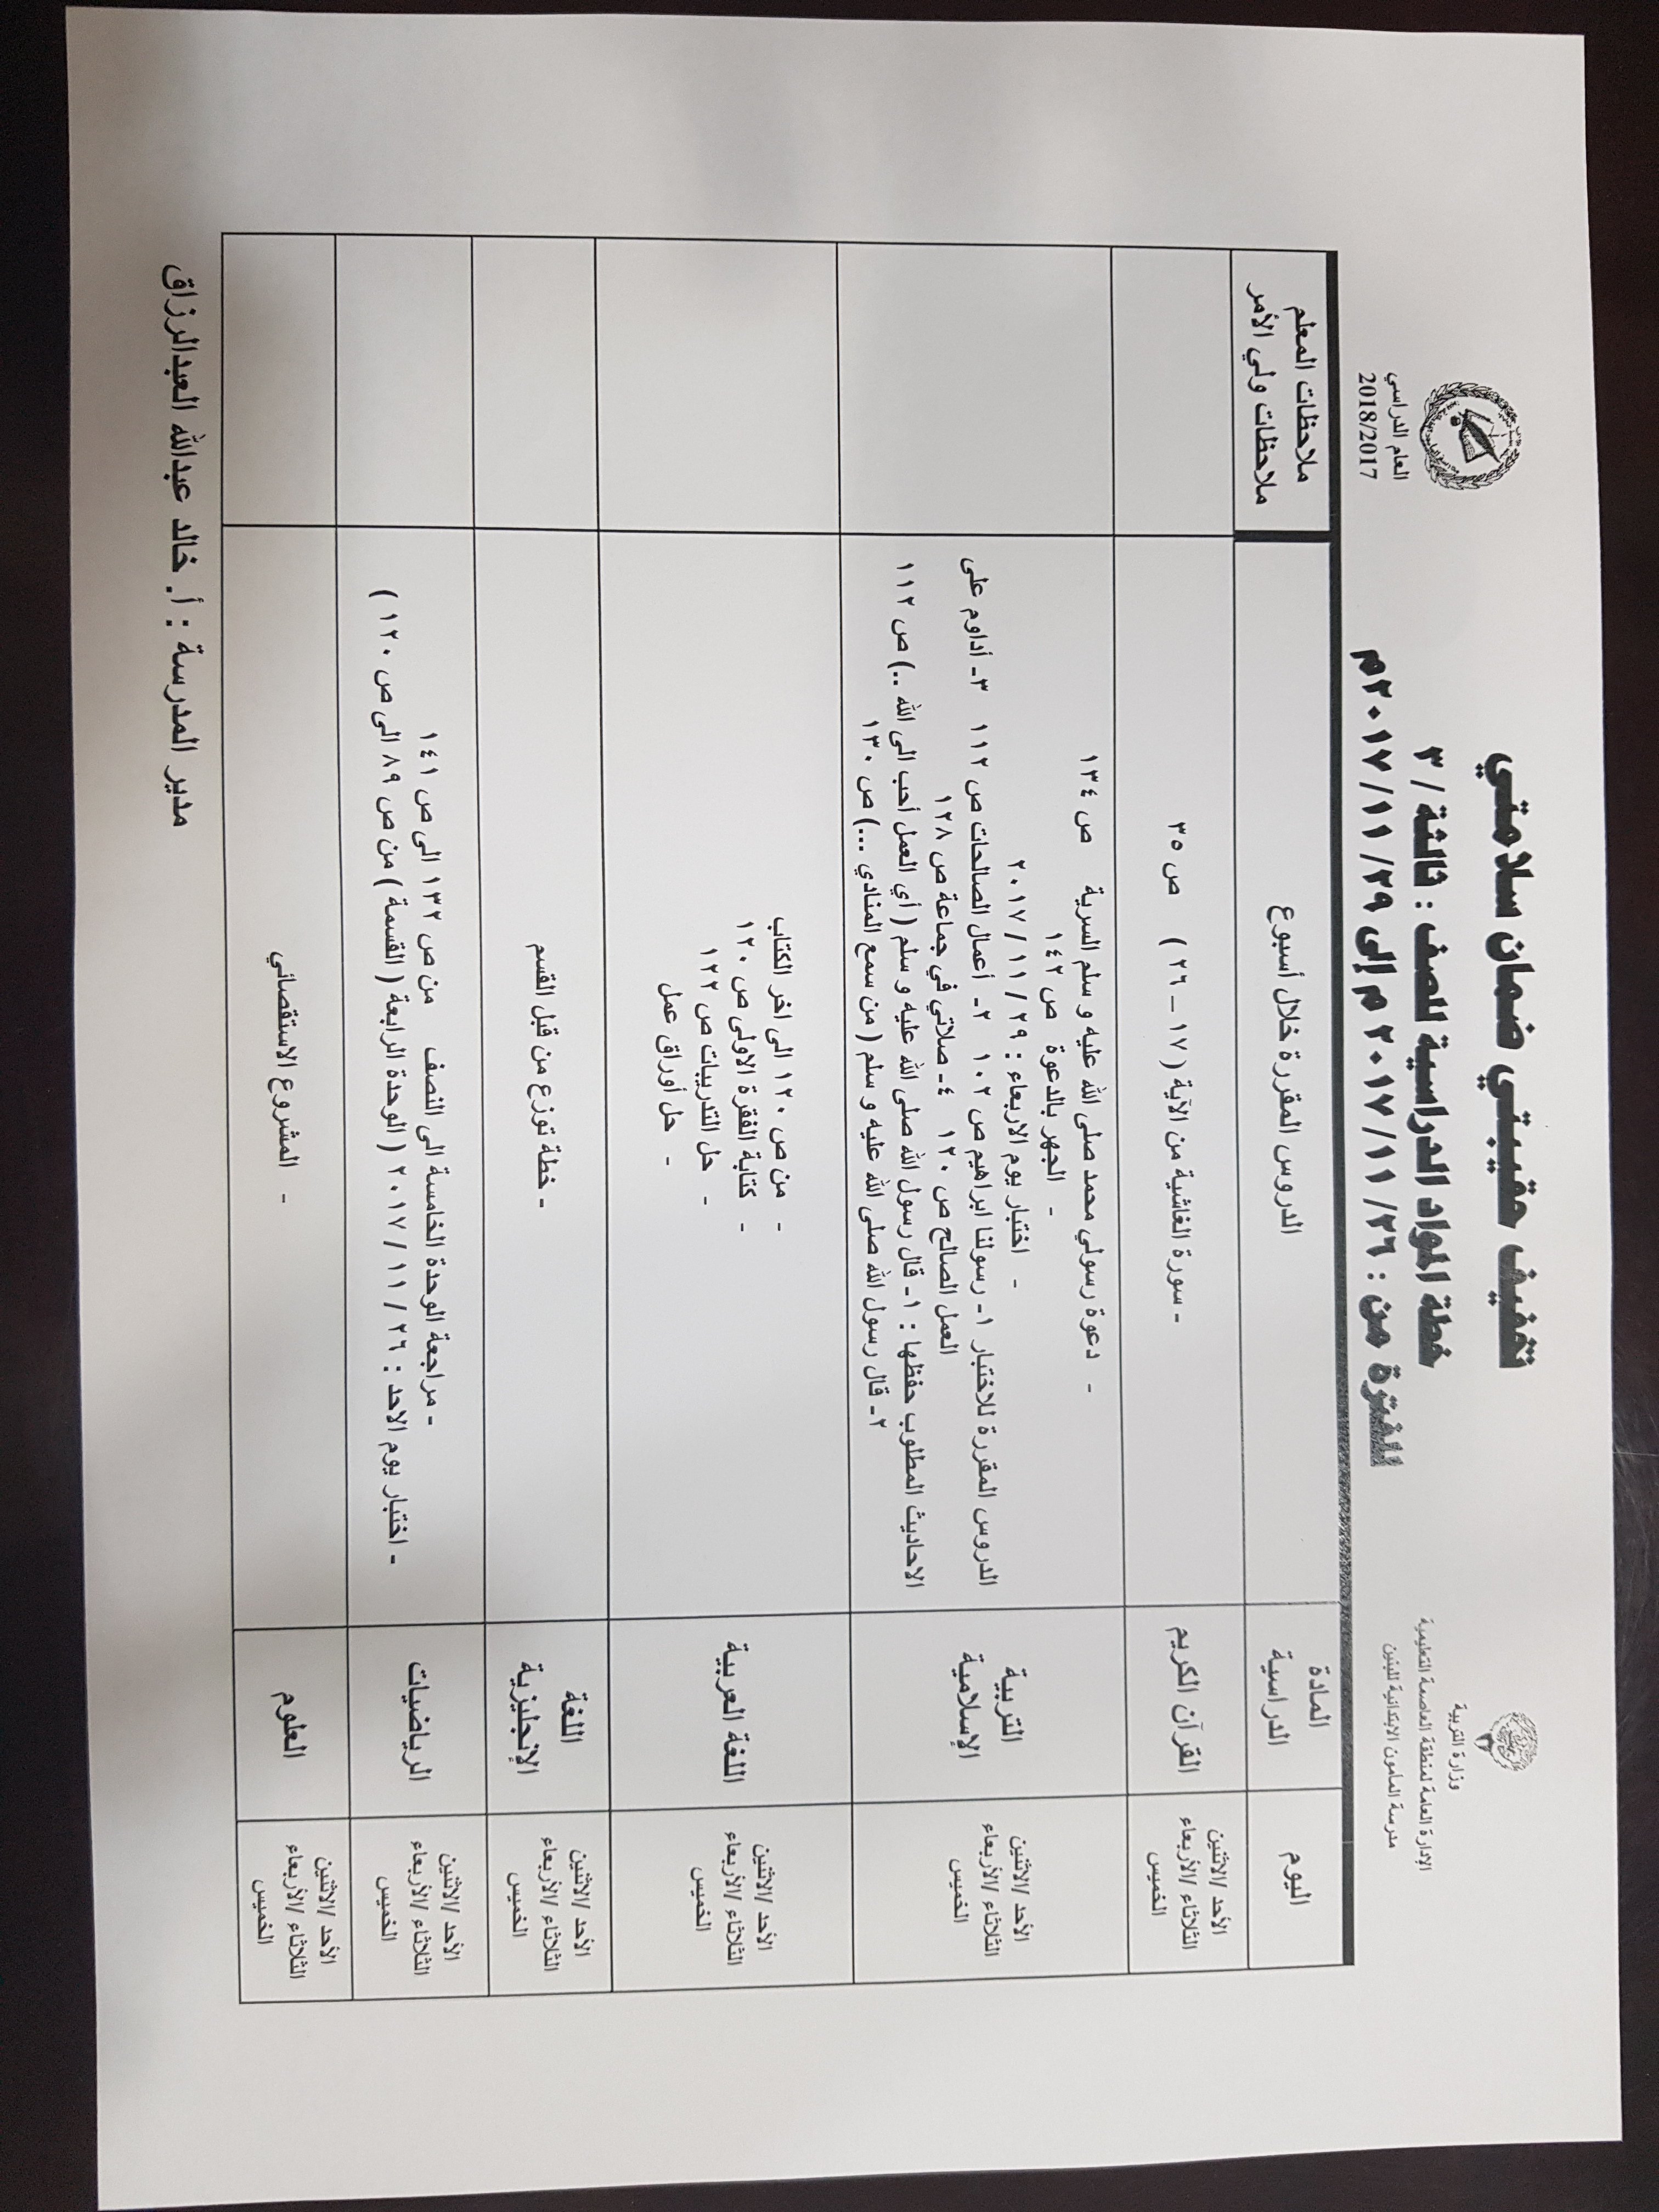 وزارة التربية
الإدارة العامة لمنطقة العاصمة التعليمية
مدرسة المأمون الابتدائية للبنين
تخفيف حقيبتي ضمان سلامتي
خطة المواد الدراسية للصف : ثالثة / ٣
للفترة من : ٢٦ /١١ /٢٠١٧ م إلى ٢٩ /١١ /٢٠١٧م
العام الدراسي
2018/2017
اليوم
المادة
الدراسية
الدروس المقررة خلال أسبوع
ملاحظات المعلم
ملاحظات ولي الأمر
الأحد /الاثنين
الثلاثاء /الأربعاء
الخميس
القرآن الكريم
- سورة الغاشية من الآية ( ١٧ – ٢٦ ) ص ٣٥
الأحد /الاثنين
الثلاثاء /الأربعاء
الخميس
التربية
الإسلامية
- دعوة رسولي محمد صلى الله عليه و سلم السرية ص ١٣٤
- الجهر بالدعوة ص ١٤٢
- اختبار يوم الاربعاء : ٢٩ / ١١ / ٢٠١٧
الدروس المقررة للاختبار ١- رسولنا ابراهيم ص ١٠٢ ٢- أعمال الصالحات ص ١١٢ ٣- أداوم على
العمل الصالح ص ١٢٠ ٤- صلاتي في جماعة ص ١٢٨
الاحاديث المطلوب حفظها : ١- قال رسول الله صلى الله عليه و سلم ( أي العمل أحب الى الله ..) ص ١١٢
٢- قال رسول الله صلى الله عليه و سلم ( من سمع المنادي ...) ص ١٣٠
الأحد /الاثنين
الثلاثاء /الأربعاء
الخميس
اللغة العربية
- من ص ١٢٠ الى اخر الكتاب
- كتابة الفقرة الاولى ص ١٢٠
- حل التدريبات ص ١٢٢
- حل أوراق عمل
الأحد /الاثنين
الثلاثاء /الأربعاء
الخميس
اللغة
الإنجليزية
- خطة توزع من قبل القسم
الأحد /الاثنين
الثلاثاء /الأربعاء
الخميس
الرياضيات
- مراجعة الوحدة الخامسة الى النصف من ص ١٣٢ الى ص ١٤١
- اختبار يوم الاحد : ٢٦ / ١١ / ٢٠١٧ ( الوحدة الرابعة ( القسمة ) من ص ٨٩ الى ص ١٢٠ )
الأحد /الاثنين
الثلاثاء /الأربعاء
الخميس
العلوم
- المشروع الاستقصائي
مدير المدرسة : أ. خالد عبدالله العبدالرزاق